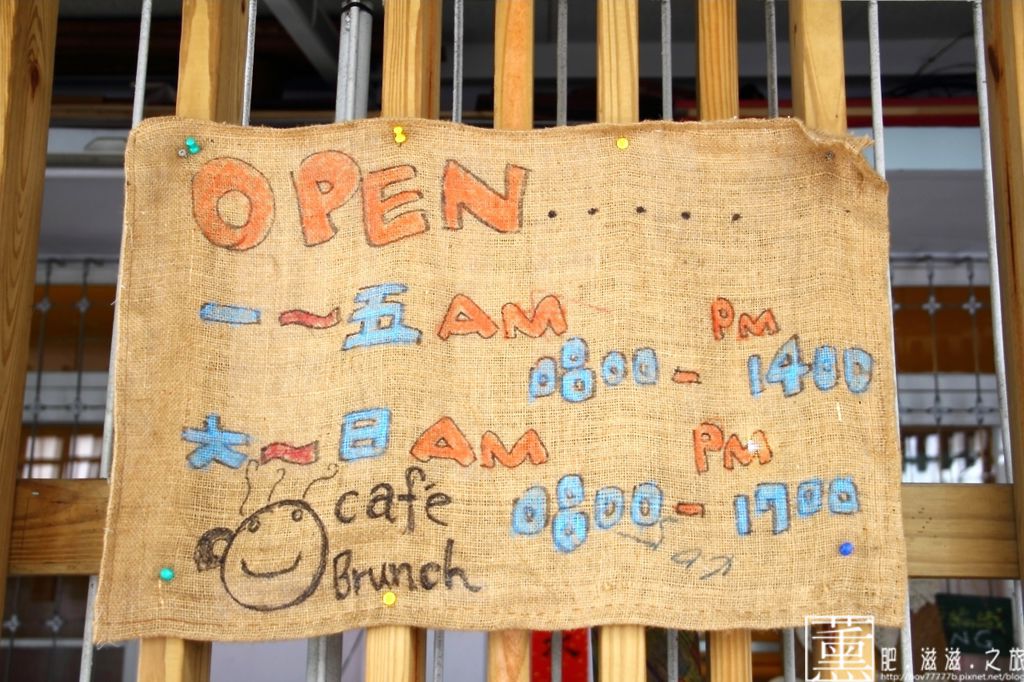 OPEN.....
一~五 AM 0800 - PM 1400
六~日 AM 0800 - PM 1700
café
Brunch
薰 肥.滋滋.之旅
http://nov77777b.pixnet.net/blog
NG